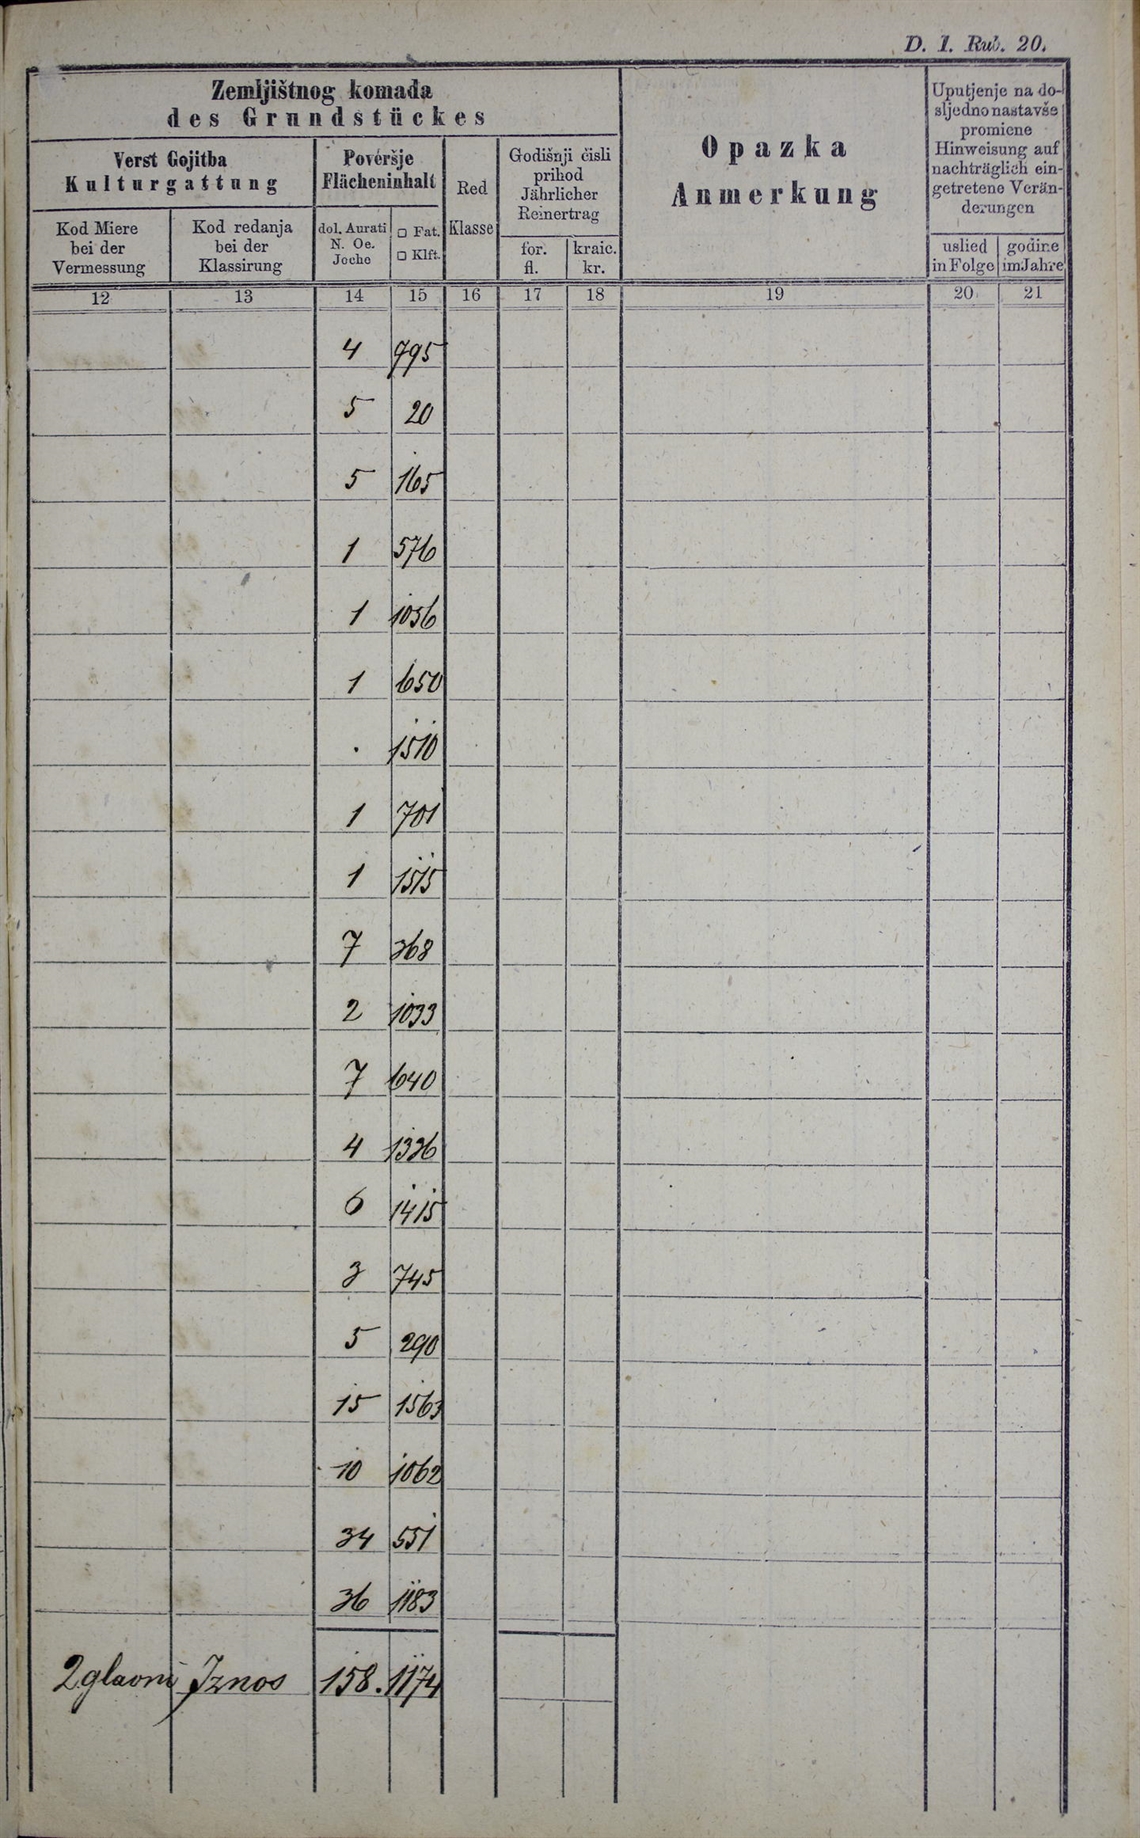 D. 1. Rub. 20.
Zemljištnog komada
des Grundstückes
Verst Gojitba
Kulturgattung
Kod Miere
bei der
Vermessung
Kod redanja
bei der
Klassirung
Poveršje
Flächeninhalt
dol. Aurati
N. Oe.
Joche
□ Fat.
□ Klft.
Red
Klasse
Godišnji čisli
prihod
Jährlicher
Reinertrag
for.
fl.
kraic.
kr.
Opazka
Anmerkung
Uputjenje na do-
sljedno nastavše
promiene
Hinweisung auf
nachträglich ein-
getretene Verän-
derungen
uslied
in Folge
godine
im Jahre
12 13 14 15 16 17 18 19 20 21
4 795
5 20
5 165
1 576
1 1056
1 650
. 1510
1 701
1 1515
7 368
2 1033
7 640
4 1336
6 1415
3 745
5 290
15 1563
10 1062
34 551
36 1183
2 glavni Iznos 158. 1174